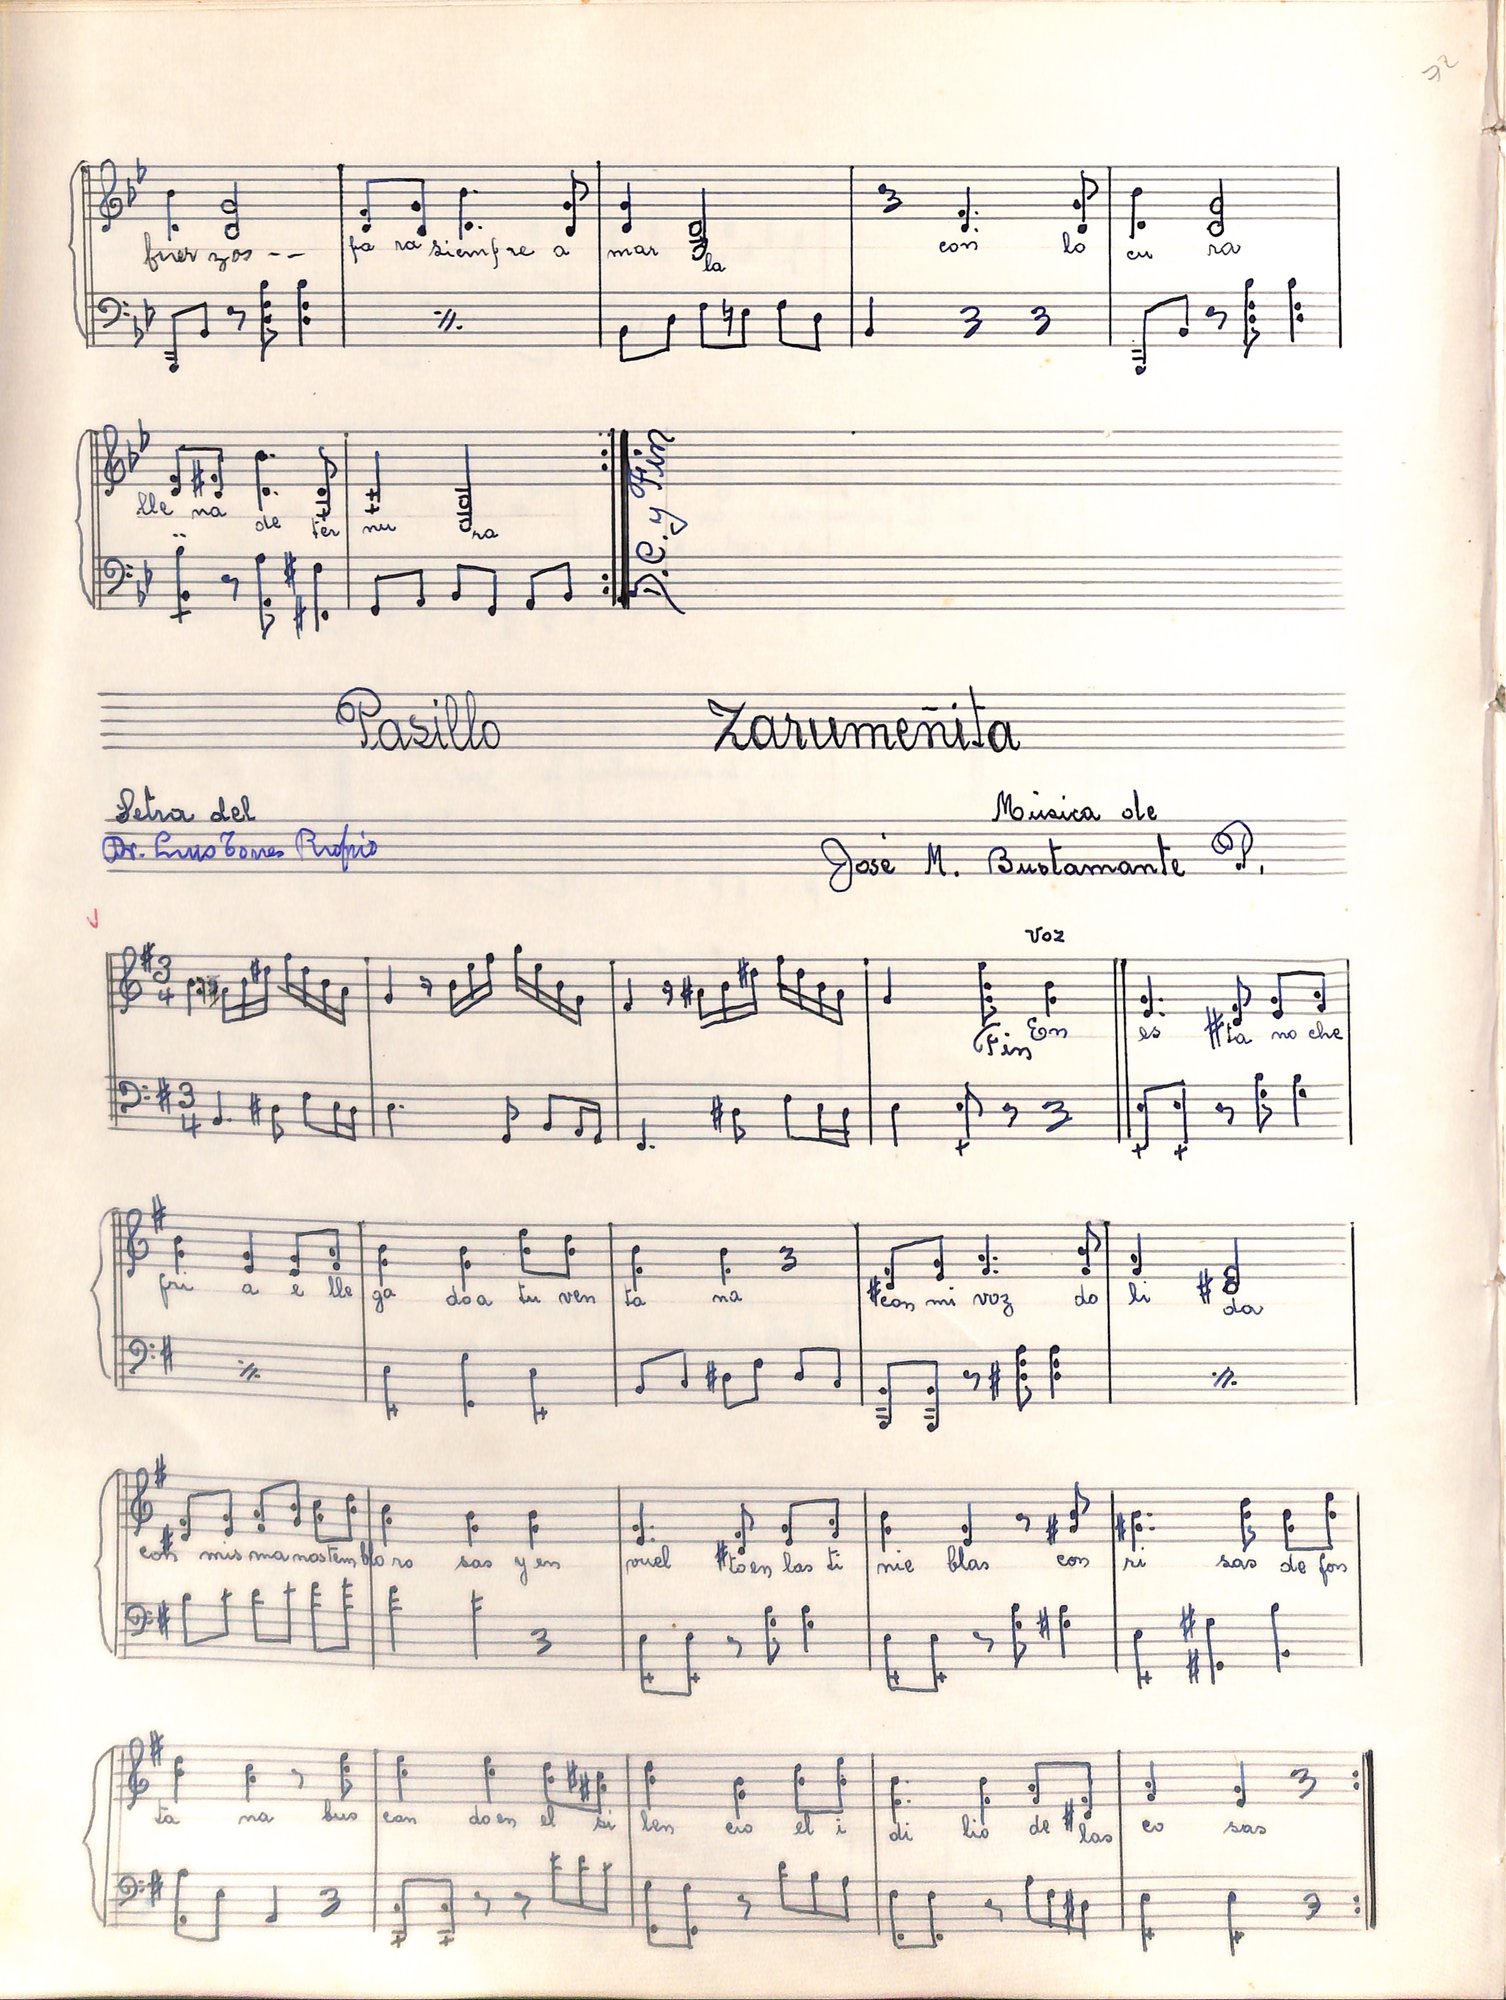 72
fuer zos -- pa ra siempre a mar la con lo cu ra
lle na de ter nu ra
D.C. y Fin
Pasillo Zarumeñita
Letra del Música de
Dr. Torres José M. Bustamante P.
voz
3 4 Fin En es ta no che
3 4
fri a e lle ga do a tu ven ta na con mi voz do li da
con mis ma nos tem blo ro sas y en vuel to en las ti nie blas con ri sas de fon
ta na bus can do en el si len cio el i di lio de las co sas